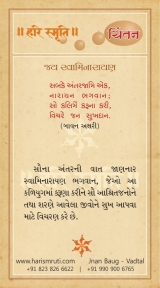 ॥ હરિ સ્મૃતિ ॥ ચિંતન
જય સ્વામિનારાયણ
સબકે અંતરજામિ એક,
નારાયન ભગવાન;
સો કલિમેં કરૂના કરી,
વિચરે જન સુખદાન.
સૌના અંતરની વાત જાણનાર
સ્વામિનારાયણ ભગવાન, જેઓ આ
કળિયુગમાં કરૂણા કરીને સૌ આશ્રિતજનોને
તથા શરણે આવેલા જીવોને સુખ આપવા
માટે વિચરણ કરે છે.
www.harismruti.com Jnan Baug - Vadtal
+91 823 826 6622 +91 990 900 6765